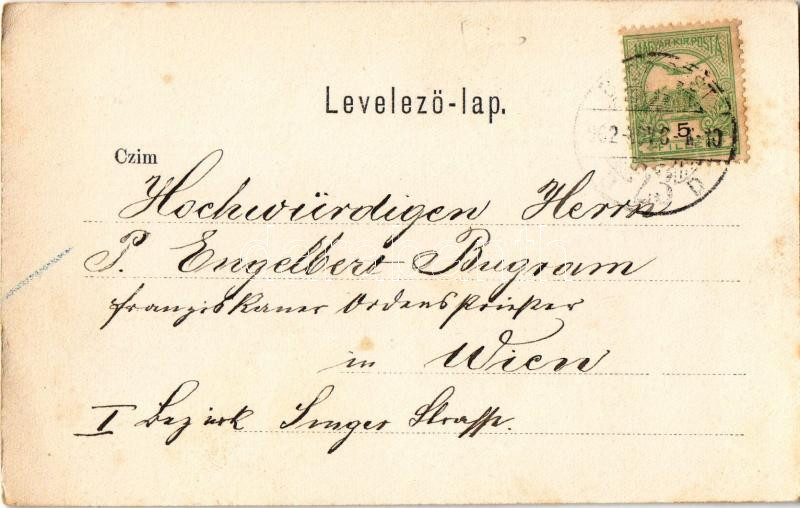 MAGYAR·KIR·POSTA
5
Levelező-lap.
Czim
Hochwürdigen Herrn
P. Engelbert Bugram
Franziskaner Ordenspriester
in Wien
I Bezirk Singer Strasse.